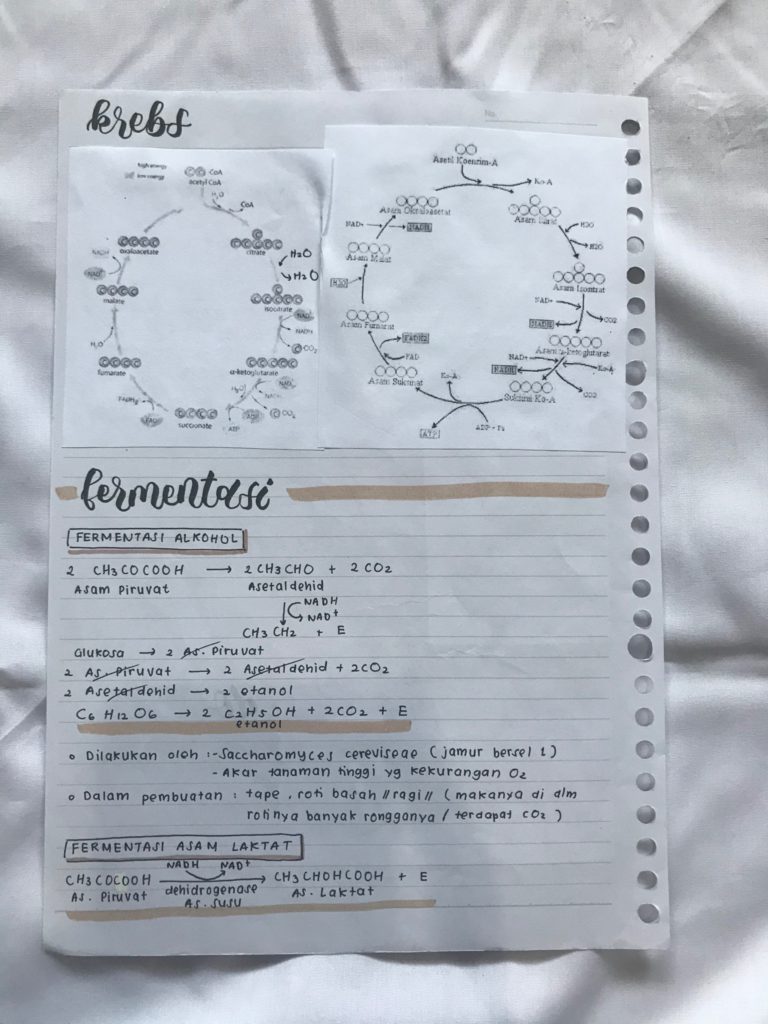 krebs
No.
high energy
low energy
CoA
acetyl CoA
H2O
CoA
oxaloacetate
citrate
H2O
H2O
NADH
NAD+
malate
isocitrate
NAD+
NADH
CO2
H2O
fumarate
α-ketoglutarate
H2O
NAD+
NADH
FADH2
FAD
succinate
ATP
CO2
Asetil Koenzim-A
Ko-A
Asam Oksaloasetat
Asam Sitrat
NAD+
NADH
H2O
H2O
Asam Malat
Asam Isositrat
H2O
NAD+
NADH
CO2
Asam Fumarat
Asam α-ketoglutarat
FADH2
FAD
NAD+
NADH
Ko-A
CO2
Asam Suksinat
Ko-A
Suksinil Ko-A
ATP
ADP + Pi
fermentasi
FERMENTASI ALKOHOL
2 CH3COCOOH → 2 CH3CHO + 2 CO2
Asam Piruvat Asetaldehid
NADH
NAD+
CH3 CH2 + E
Glukosa → 2 As. Piruvat
2 As. Piruvat → 2 Asetaldehid + 2CO2
2 Asetaldehid → 2 etanol
C6 H12 O6 → 2 C2H5OH + 2CO2 + E
etanol
Dilakukan oleh : - Saccharomyces cereviseae (jamur bersel 1)
- Akar tanaman tinggi yg kekurangan O2
Dalam pembuatan : tape, roti basah //ragi// (makanya di dlm
rotinya banyak rongganya / terdapat CO2)
FERMENTASI ASAM LAKTAT
NADH NAD+
CH3COCOOH → CH3 CHOHCOOH + E
As. Piruvat dehidrogenase As. Laktat
As. susu